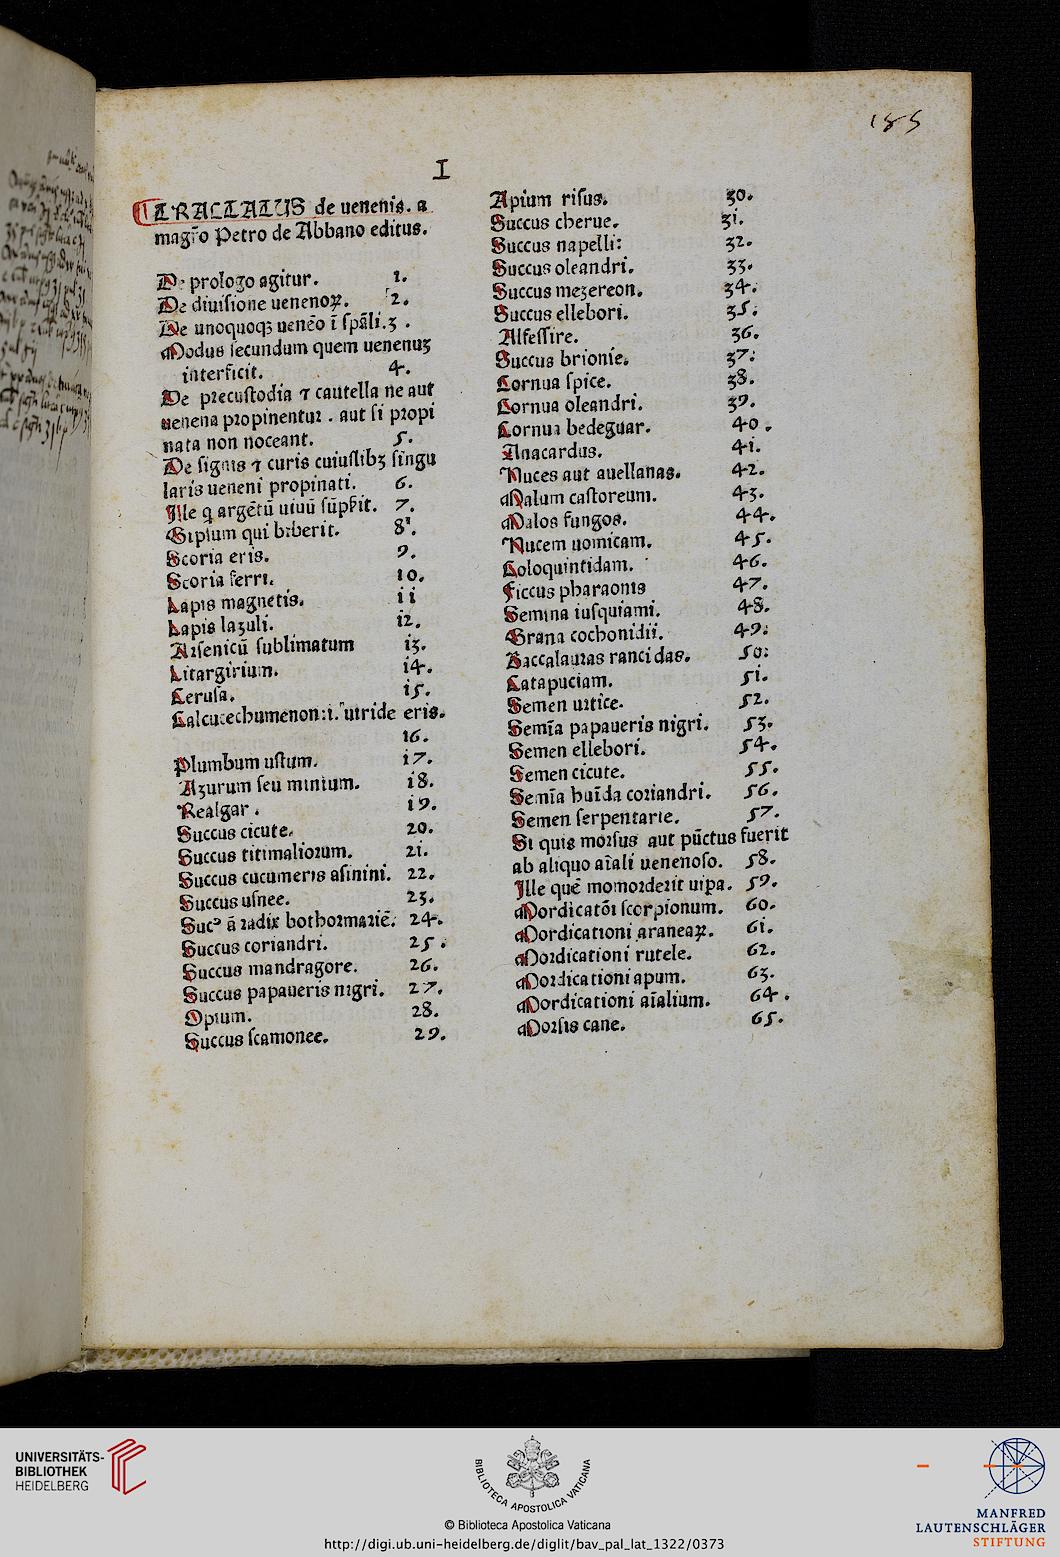 185
I
TRACTATUS de uenenis. a
magr̄o Petro de Abbano editus.
De prologo agitur. 1.
De diuisione uenenoꝝ. 2.
De unoquoqꝫ uenēo ī spāli. 3.
Modus secundum quem uenenuꝫ
interficit. 4.
De precustodia ⁊ cautella ne aut
uenena propinentur. aut si propi
nata non noceant. 5.
De signis ⁊ curis cuiuslibꝫ singu
laris ueneni propinati. 6.
Ille q argētū uiuū 7.
Gipsum qui biberit. 8.
Scoria eris. 9.
Scoria ferri. 10.
Lapis magnetis. 11
Lapis lazuli. 12.
Arsenicū sublimatum 13.
Litargirium. 14.
Cerusa. 15.
Calcucechumenon: i. uiride eris.
16.
Plumbum ustum. 17.
Azurum seu minium. 18.
Realgar. 19.
Succus cicute. 20.
Succus titimaliorum. 21.
Succus cucumeris asinini. 22.
Succus usnee. 23.
Sucꝰ ā radix bothormariē. 24.
Succus coriandri. 25.
Succus mandragore. 26.
Succus papaueris nigri. 27.
Opium. 28.
Succus scamonee. 29.
Apium risus. 30.
Succus cherue. 31.
Succus napelli: 32.
Succus oleandri. 33.
Succus mezereon. 34.
Succus ellebori. 35:
Alfessire. 36.
Succus brionie. 37:
Cornua spice. 38.
Cornua oleandri. 39.
Cornua bedeguar. 40.
Anacardus. 41.
Nuces aut auellanas. 42.
Malum castoreum. 43.
Malos fungos. 44.
Nucem uomicam. 45.
Coloquintidam. 46.
Ficcus pharaonis 47.
Semina iusquiami. 48.
Grana cochonidii. 49:
Baccalauras rancidas. 50:
Catapuciam. 51.
Semen urtice. 52.
Semīa papaueris nigri. 53.
Semen ellebori. 54.
Semen cicute. 55.
Semīa huīda coriandri. 56.
Semen serpentarie. 57.
Si quis morsus aut pūctus fuerit
ab aliquo aīali uenenoso. 58.
Ille quē momorderit uipa. 59.
Mordicatōi scorpionum. 60.
Mordicationi araneaꝝ. 61.
Mordicationi rutele. 62.
Mordicationi apum. 63.
Mordicationi aīalium. 64.
Morsis cane. 65.
UNIVERSITÄTS-
BIBLIOTHEK
HEIDELBERG
BIBLIOTECA APOSTOLICA VATICANA
© Biblioteca Apostolica Vaticana
http://digi.ub.uni-heidelberg.de/diglit/bav_pal_lat_1322/0373
MANFRED
LAUTENSCHLÄGER
STIFTUNG